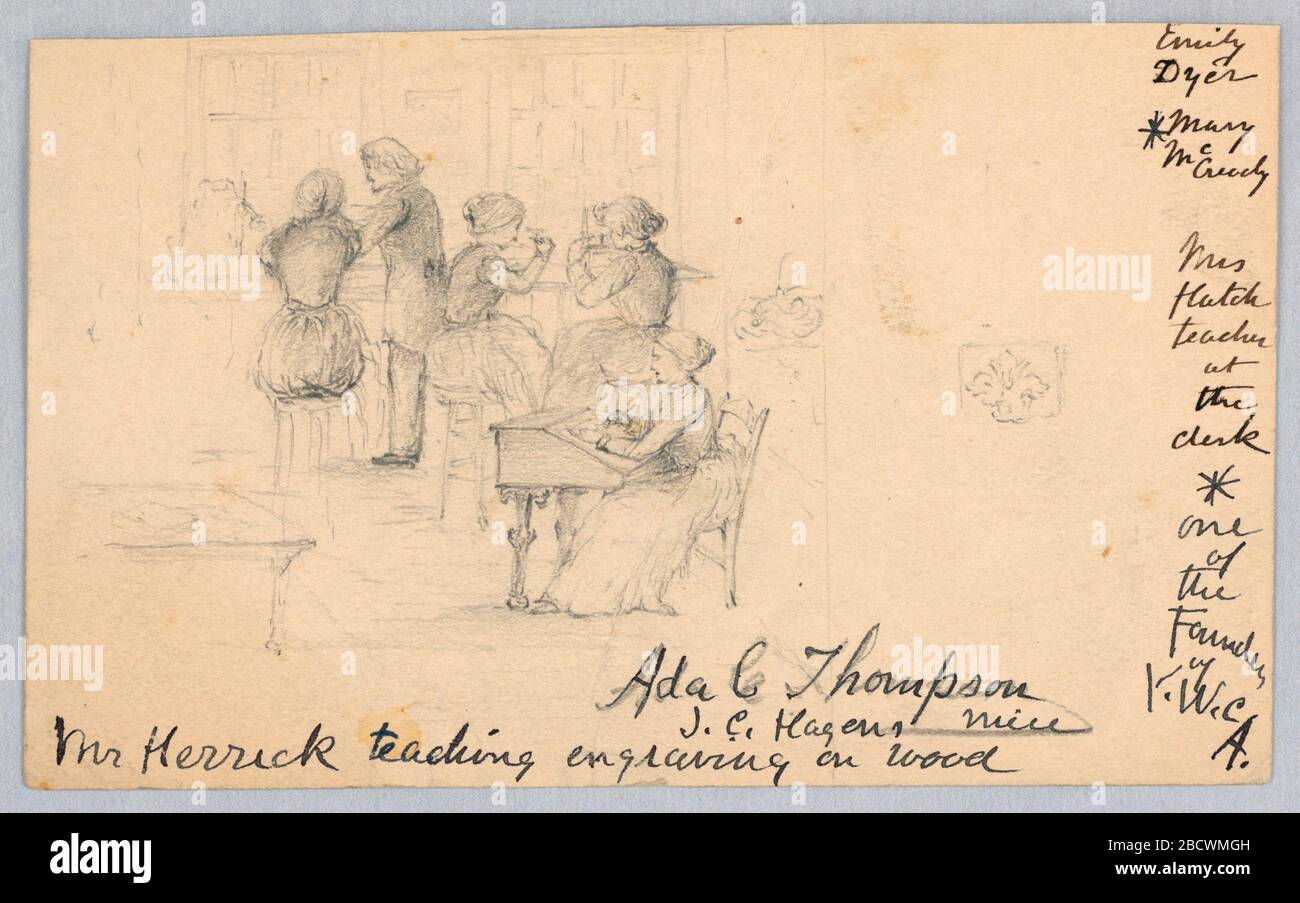 Emily
Dyer
* Mary
McCready
Mrs
Hatch
teacher
at
the
desk
*
one
of
the
Founders
of
Y.W.C.
A.
Ada C Thompson
J. C. Hagens niece
Mr Herrick teaching engraving on wood
alamy
alamy
Image ID: 2BCWMGH
www.alamy.com